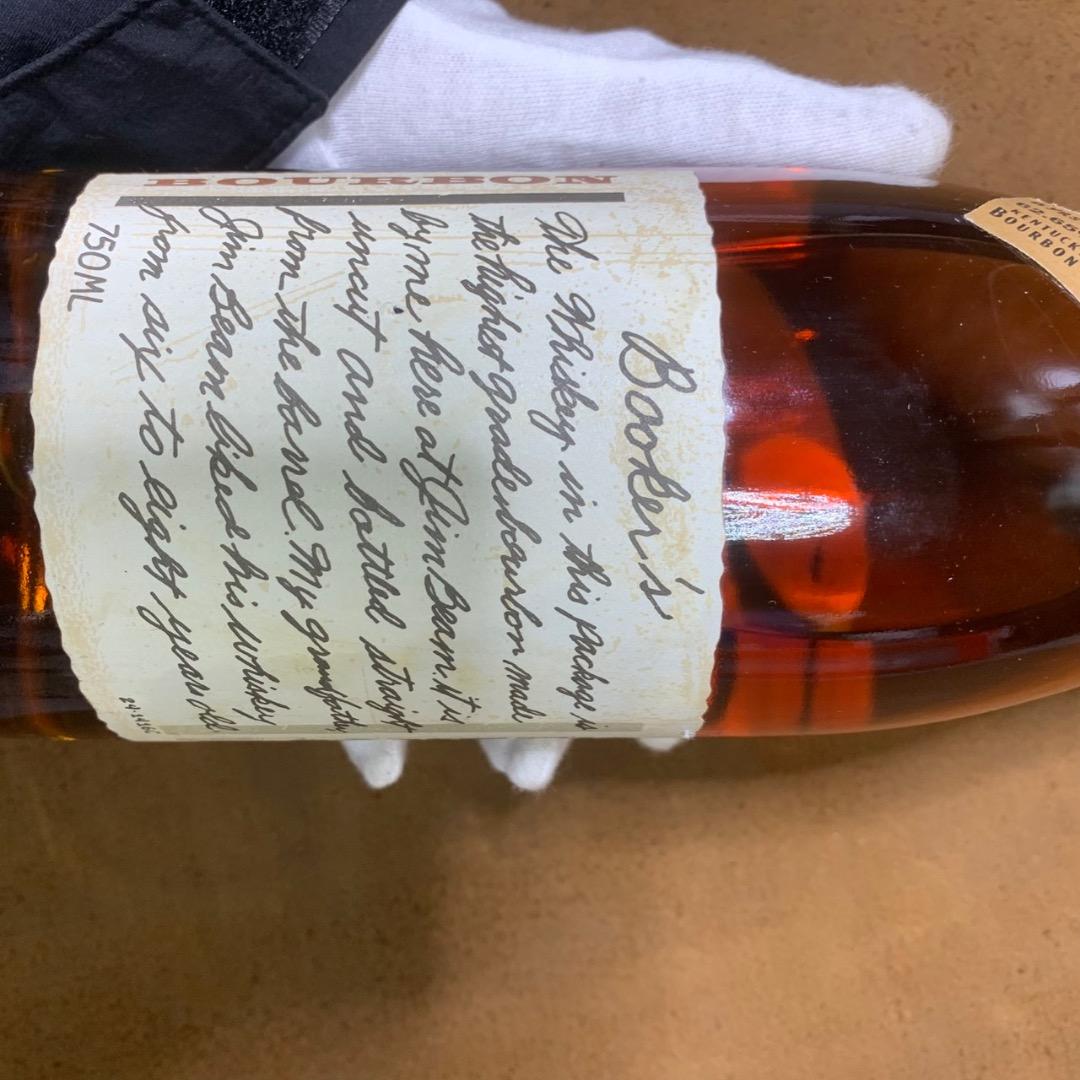 Booker's
The Whiskey in this package is
the highest grade bourbon made
by me, here at Jim Beam. It is
uncut and bottled straight
from the barrel. My grandfather,
Jim Beam liked his whisky
from six to eight years old
750ML
BOURBON
KENTUCK
BOURBON